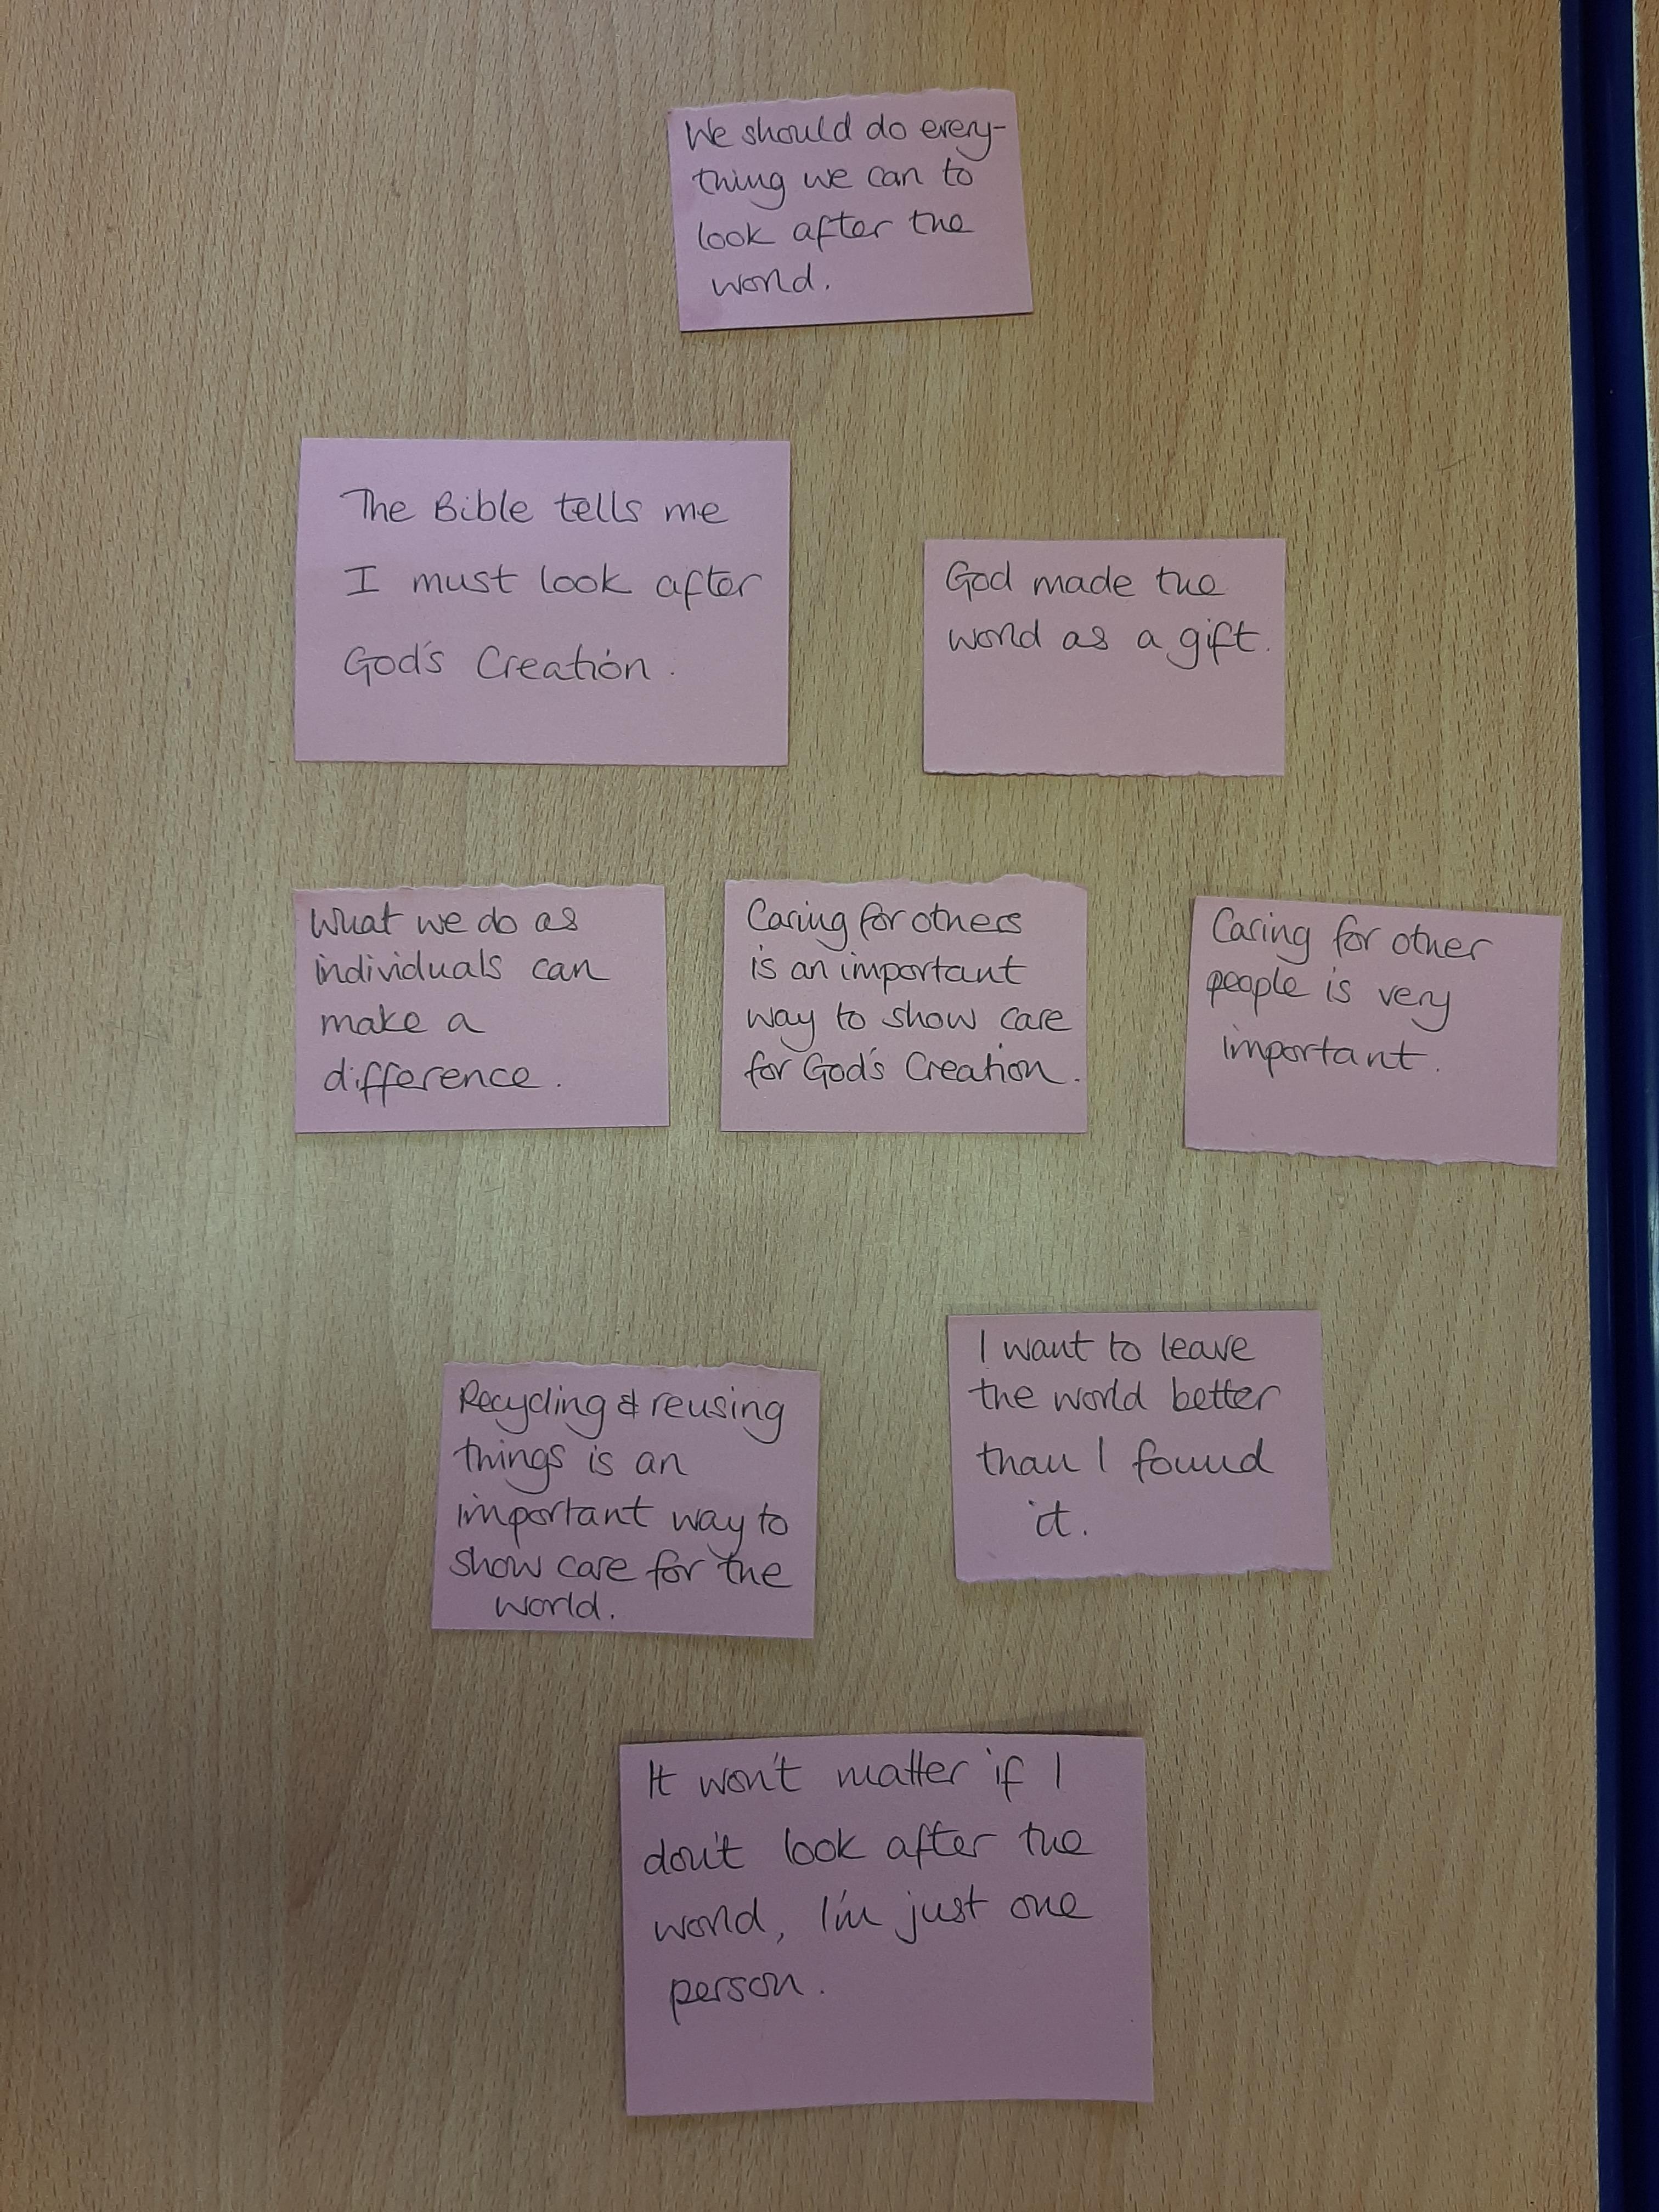 We should do every-
thing we can to
look after the
world.
The Bible tells me
I must look after
God's Creation.
God made the
world as a gift.
What we do as
individuals can
make a
difference.
Caring for others
is an important
way to show care
for God's Creation.
Caring for other
people is very
important.
Recycling & reusing
things is an
important way to
show care for the
world.
I want to leave
the world better
than I found
it.
It won't matter if I
don't look after the
world, I'm just one
person.